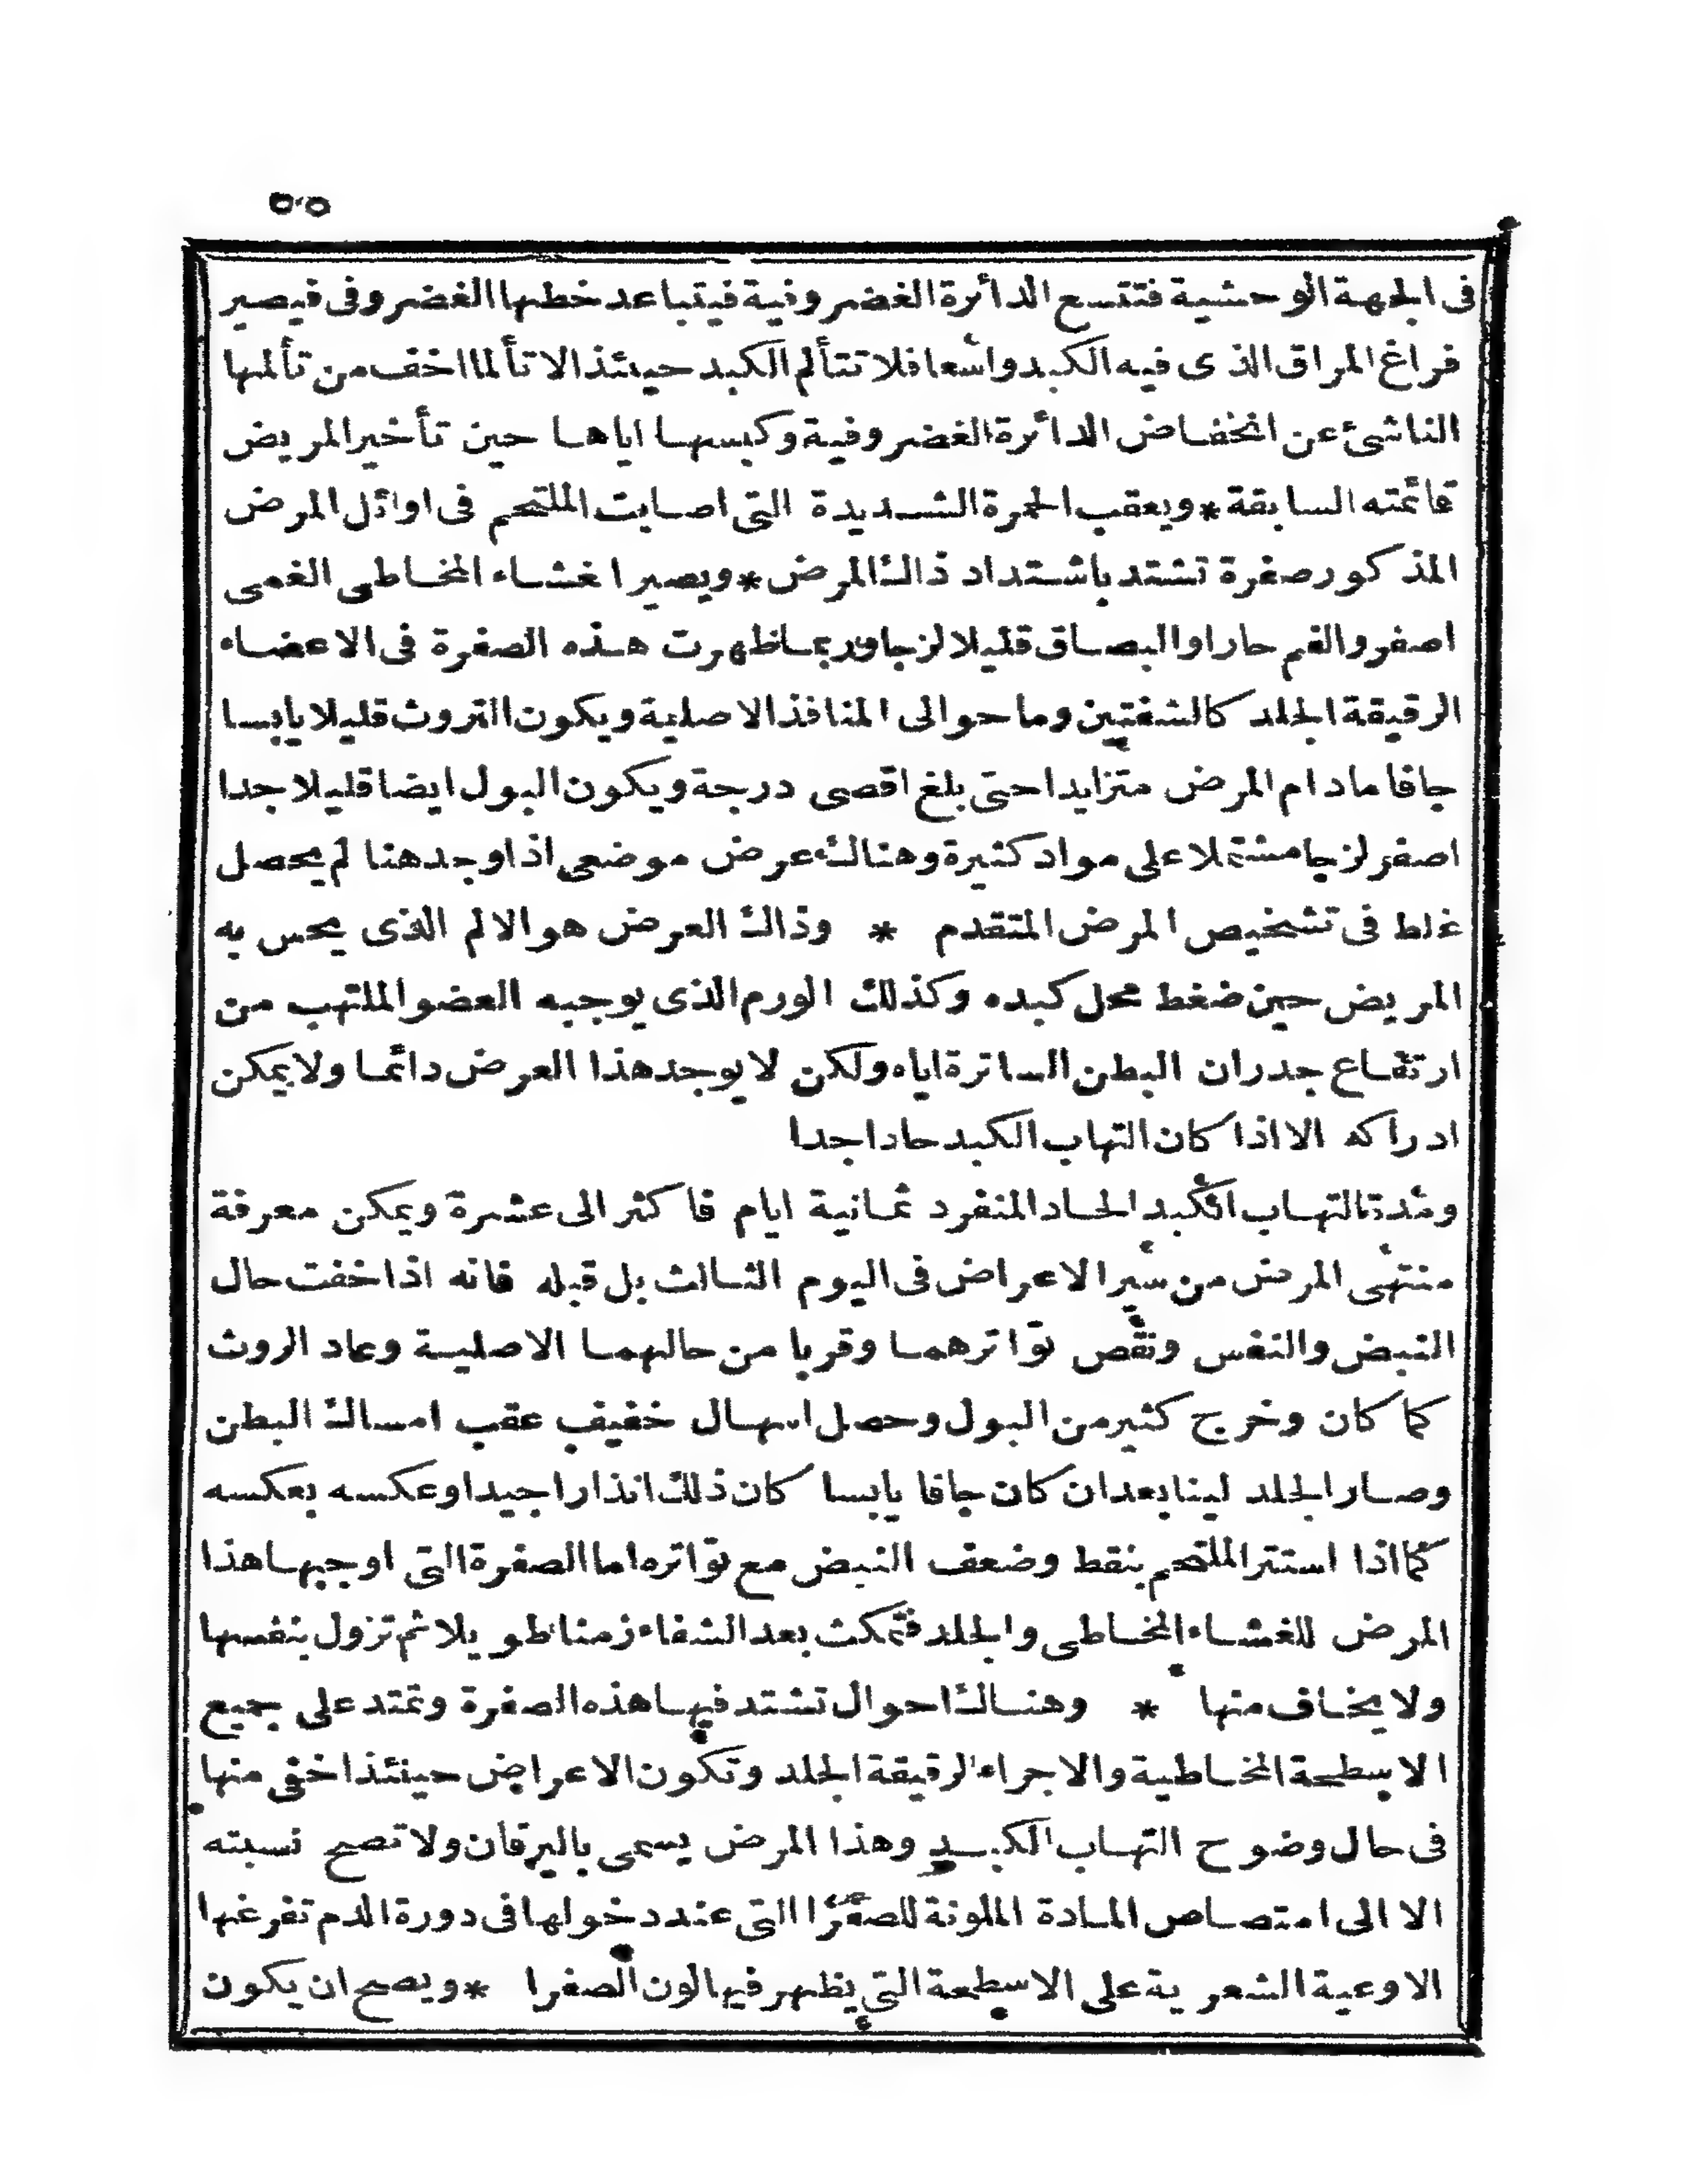 ٥٠٥
فى الجهة الوحشية فتتسع الدائرة الغضروفية فيتباعد خطها الغضروفى فيصير
فراغ المراق الذى فيه الكبد واسعا فلا تتألم الكبد حينئذ الا تألما اخف من تألمها
الناشئ عن انخفاض الدائرة الغضروفية وكبسها اياها حين تأخير المريض
قائمته السابقة * ويعقب الحمرة الشديدة التى اصابت الملتحم فى اوائل المرض
المذكور صفرة تشتد باشتداد ذالك المرض * ويصير الغشاء المخاطى الغمى
اصفر والفم حارا والبصاق قليلا لزجا وربما ظهرت هذه الصفرة فى الاعضاء
الرقيقة الجلد كالشفتين وما حوالى المنافذ الاصلية ويكون التروث قليلا يابسا
جافا مادام المرض متزايدا حتى بلغ اقصى درجة ويكون البول ايضا قليلا جدا
اصفر لزجا مشتملا على مواد كثيرة وهنالك عرض موضعى اذا وجد هنا لم يحصل
غلط فى تشخيص المرض المتقدم * وذالك العرض هو الالم الذى يحس به
المريض حين ضغط محل كبده وكذلك الورم الذى يوجبه العضو الملتهب من
ارتفاع جدران البطن الساترة اياه ولكن لا يوجد هذا العرض دائما ولا يمكن
ادراكه الا اذا كان التهاب الكبد حادا جدا
ومدة التهاب الكبد الحاد المنفرد ثمانية ايام فاكثر الى عشرة ويمكن معرفة
منتهى المرض من سير الاعراض فى اليوم الثالث بل قبله فانه اذا خفت حال
النبض والنفس ونقص تواترهما وقربا من حالهما الاصلية وعاد الروث
كما كان وخرج كثير من البول وحصل اسهال خفيف عقب امساك البطن
وصار الجلد لينا بعد ان كان جافا يابسا كان ذلك انذارا جيدا وعكسه بعكسه
كما اذا استتر الملتحم بنقط وضعف النبض مع تواتره اما الصفرة التى اوجبها هذا
المرض للغشاء المخاطى والجلد فتمكث بعد الشفاء زمنا طويلا ثم تزول بنفسها
ولا يخاف منها * وهنالك احوال تشتد فيها هذه الصفرة وتمتد على جميع
الاسطحة المخاطية والاجراء الرقيقة الجلد وتكون الاعراض حينئذ اخفى منها
فى حال وضوح التهاب الكبد وهذا المرض يسمى باليرقان ولا تصح نسبته
الا الى امتصاص المادة الملونة للصفرا التى عند دخولها فى دورة الدم تفرغها
الاوعية الشعرية على الاسطحة التى يظهر فيها لون الصفرا * ويصح ان يكون